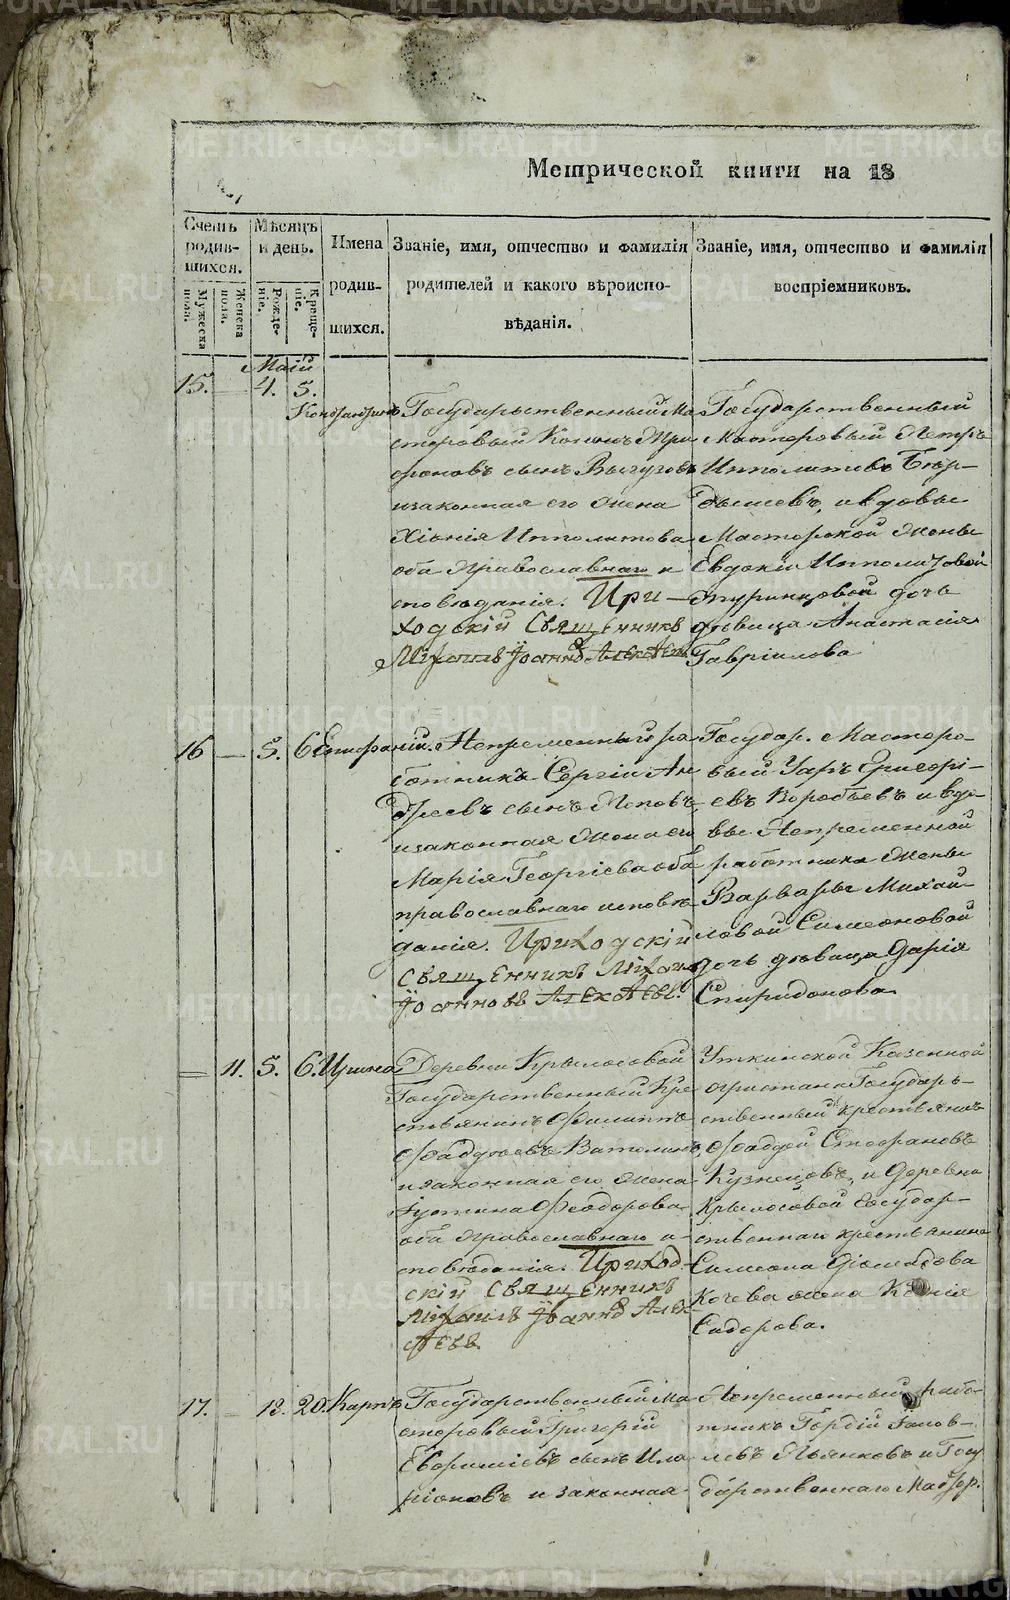 Метрической книги на 18
Счетъ родив-шихся.
Мужеска пола.
Женска пола.
Мѣсяцъ и день.
Рожде-ніе.
Креще-ніе.
Имена
родив-
шихся.
Званіе, имя, отчество и фамилія
родителей и какого вѣроиспо-
вѣданія.
Званіе, имя, отчество и фамилія
воспріемниковъ.
Маій
15. — 4. 5.
Государственный Ма
стеровый Кононъ Три
фоновъ сынъ
и законная его жена
Хіонія Ипполитова
оба Православнаго и
сповѣданія. При-
ходскій Священникъ
Міхаилъ Іоанновъ
Государственный
Мастеровый Петръ
Ипполитовъ
и вдовы
Мастерской жены
Евдокіи Ипполитовой
дочь
дѣвица Анастасія
Гавріилова
16 — 5. 6 Епифаній.
Непременный ра
ботникъ Сергій Ан
дреевъ сынъ Поповъ,
и законная жена его
Марія Георгіева оба
православнаго исповѣ
данія. Приходскій
Священникъ Міхаилъ
Іоанновъ
Государ. Мастеро-
вый Уаръ Григорі-
евъ Воробьевъ и вдо-
вы Непременной
работника жены
Варвары Михай-
ловой Симеоновой
дочь дѣвица Дарія
Спиридонова
— 11. 5. 6. Ирина
Деревни Крылосовой
Государственный Кре
стьянинъ Филиппъ
Фаддѣевъ Ватолинъ,
и законная его жена
Іустина Феодорова
оба Православнаго и-
сповѣданія. Приход-
скій Священникъ
Міхаилъ Іоанновъ
Уткинской Казенной
пристани Государ-
ственный крестьянинъ
Фаддей Стефановъ
Кузнецовъ, и Деревни
Крылосовой Государ-
ственнаго крестьянина
Симеона
жена
Сидорова.
17. — 13. 20. Карпъ
Государственный Ма
стеровый Григорій
сынъ
и законная
Непременный рабо-
тникъ Гордій
Пьянковъ и Госу
дарственнаго Мастер.
METRIKI.GASU-URAL.RU